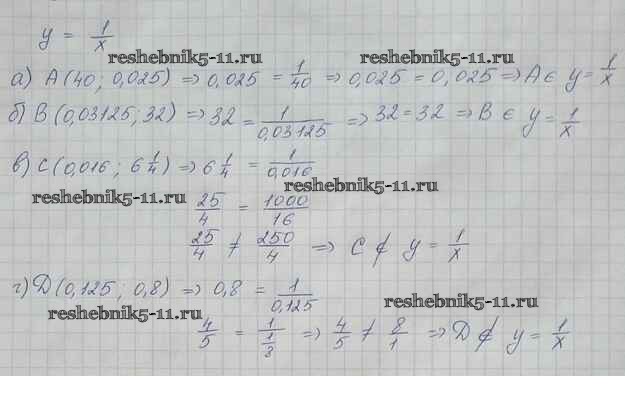 y = 1/x
reshebnik5-11.ru reshebnik5-11.ru
а) A(40; 0,025) ⇒ 0,025 = 1/40 ⇒ 0,025 = 0,025 ⇒ A ∈ y = 1/x
б) B(0,03125; 32) ⇒ 32 = 1/0,03125 ⇒ 32 = 32 ⇒ B ∈ y = 1/x
в) C(0,016; 6 1/4) ⇒ 6 1/4 = 1/0,016
reshebnik5-11.ru
reshebnik5-11.ru
25/4 = 1000/16
25/4 ≠ 250/4 ⇒ C ∉ y = 1/x
г) D(0,125; 0,8) ⇒ 0,8 = 1/0,125
reshebnik5-11.ru
reshebnik5-11.ru
4/5 = 1/(1/8) ⇒ 4/5 ≠ 8/1 ⇒ D ∉ y = 1/x